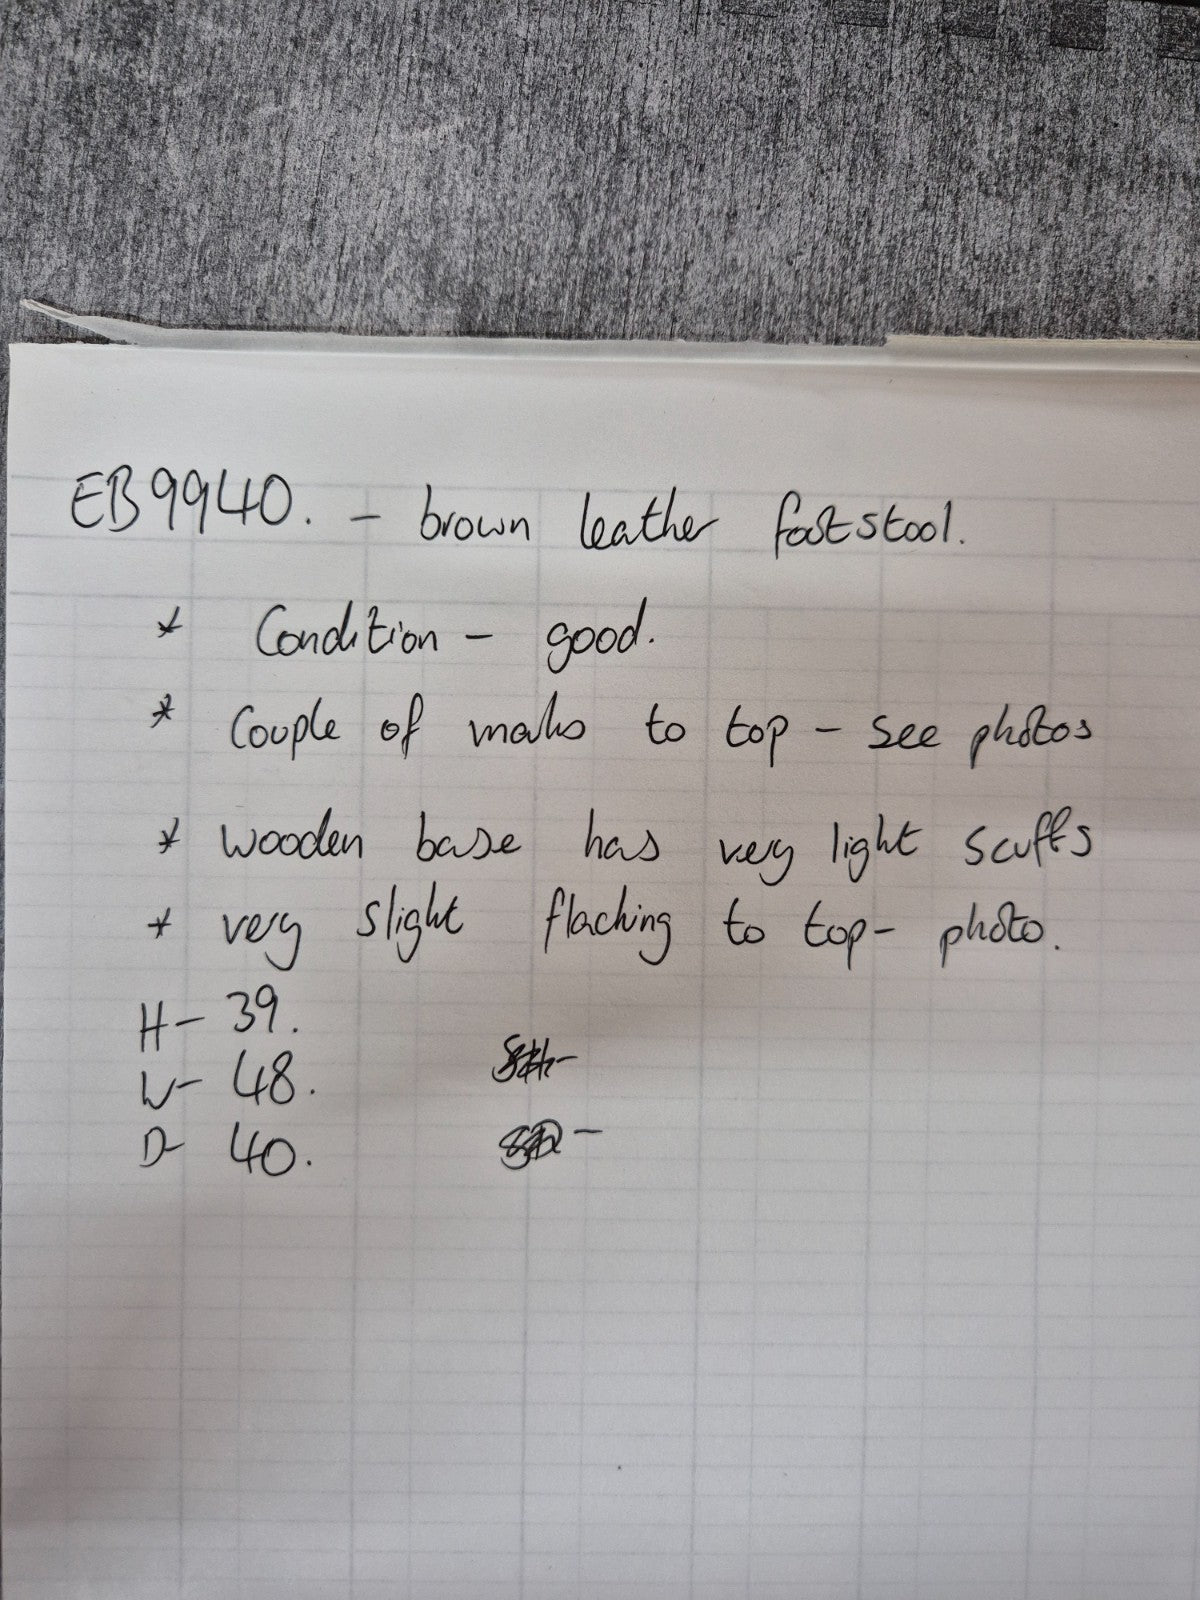 EB9940. - brown leather footstool.
* Condition - good.
* Couple of marks to top - see photos
* Wooden base has very light scuffs
* very slight flacking to top - photo.
H - 39.
W - 48.
D - 40.